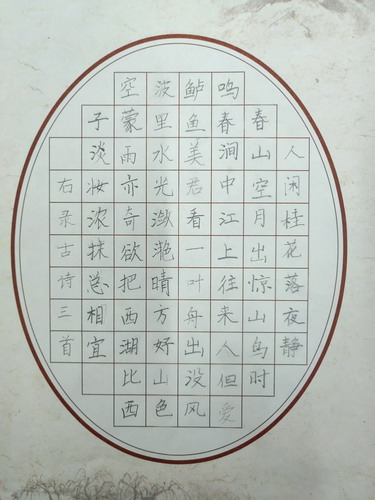 人闲桂花落夜静
春山空月出惊山鸟时
鸣春涧中江上往来人但爱
鲈鱼美君看一叶舟出没风
波里水光潋滟晴方好山色
空蒙雨亦奇欲把西湖比西
子淡妆浓抹总相宜
右录古诗三首